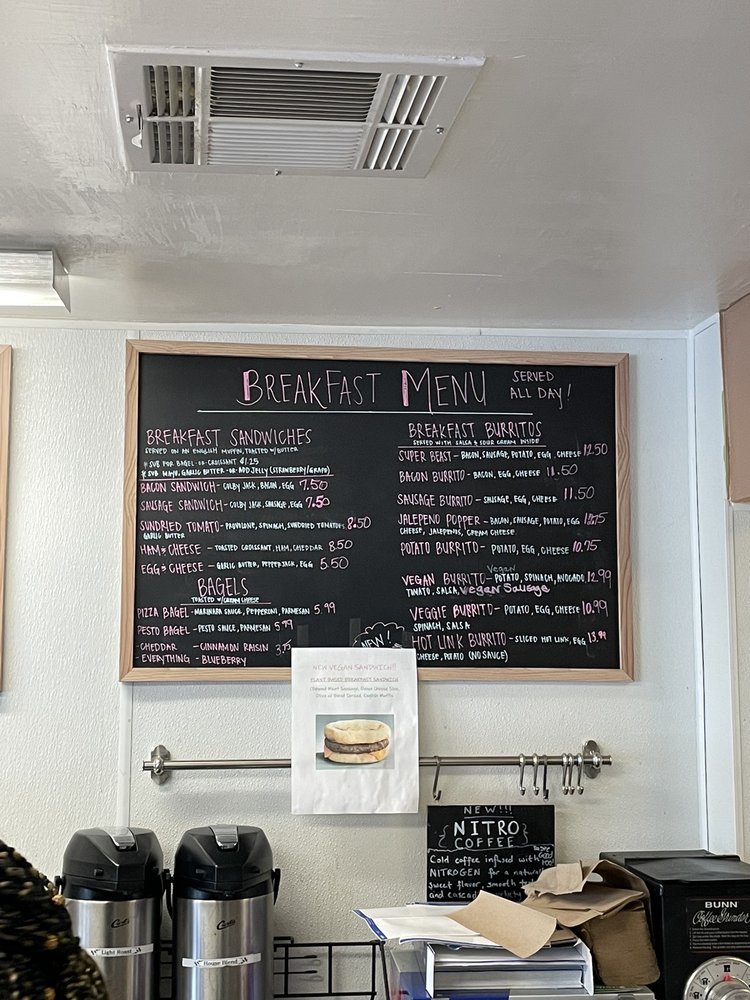 BREAKFAST MENU
SERVED
ALL DAY!
BREAKFAST SANDWICHES
SERVED ON AN ENGLISH MUFFIN, TOASTED W/BUTTER
* SUB FOR BAGEL -OR- CROISSANT $1.25
* SUB MAYO, GARLIC BUTTER -OR- ADD JELLY (STRAWBERRY/GRAPE)
BACON SANDWICH - COLBY JACK, BACON, EGG 7.50
SAUSAGE SANDWICH - COLBY JACK, SAUSAGE, EGG 7.50
SUNDRIED TOMATO - PROVOLONE, SPINACH, SUNDRIED TOMATOES 8.50
GARLIC BUTTER
HAM & CHEESE - TOASTED CROISSANT, HAM, CHEDDAR 8.50
EGG & CHEESE - GARLIC BUTTER, PEPPERJACK, EGG 5.50
BAGELS
TOASTED W/CREAM CHEESE
PIZZA BAGEL - MARINARA SAUCE, PEPPERONI, PARMESAN 5.99
PESTO BAGEL - PESTO SAUCE, PARMESAN 5.99
- CHEDDAR - CINNAMON RAISIN 3.75
- EVERYTHING - BLUEBERRY
BREAKFAST BURRITOS
SERVED WITH SALSA & SOUR CREAM INSIDE
SUPER BEAST - BACON, SAUSAGE, POTATO, EGG, CHEESE 12.50
BACON BURRITO - BACON, EGG, CHEESE 11.50
SAUSAGE BURRITO - SAUSAGE, EGG, CHEESE 11.50
JALEPENO POPPER - BACON, SAUSAGE, POTATO, EGG 12.75
CHEESE, JALEPENOS, CREAM CHEESE
POTATO BURRITO - POTATO, EGG, CHEESE 10.75
Vegan
VEGAN BURRITO - POTATO, SPINACH, AVOCADO, 12.99
TOMATO, SALSA, Vegan Sausage
VEGGIE BURRITO - POTATO, EGG, CHEESE 10.99
SPINACH, SALSA
NEW!
HOT LINK BURRITO - SLICED HOT LINK, EGG 13.99
CHEESE, POTATO (NO SAUCE)
NEW VEGAN SANDWICH!!!
PLANT BASED BREAKFAST SANDWICH
(Beyond Meat Sausage, Daiya Cheese Slice,
Olive oil Based Spread, English Muffin
NEW!!!
NITRO
COFFEE
Cold coffee infused with
NITROGEN for a natural
sweet flavor, smooth
and
Curtis
Light Roast
Curtis
House Blend
BUNN
Coffee Grinder